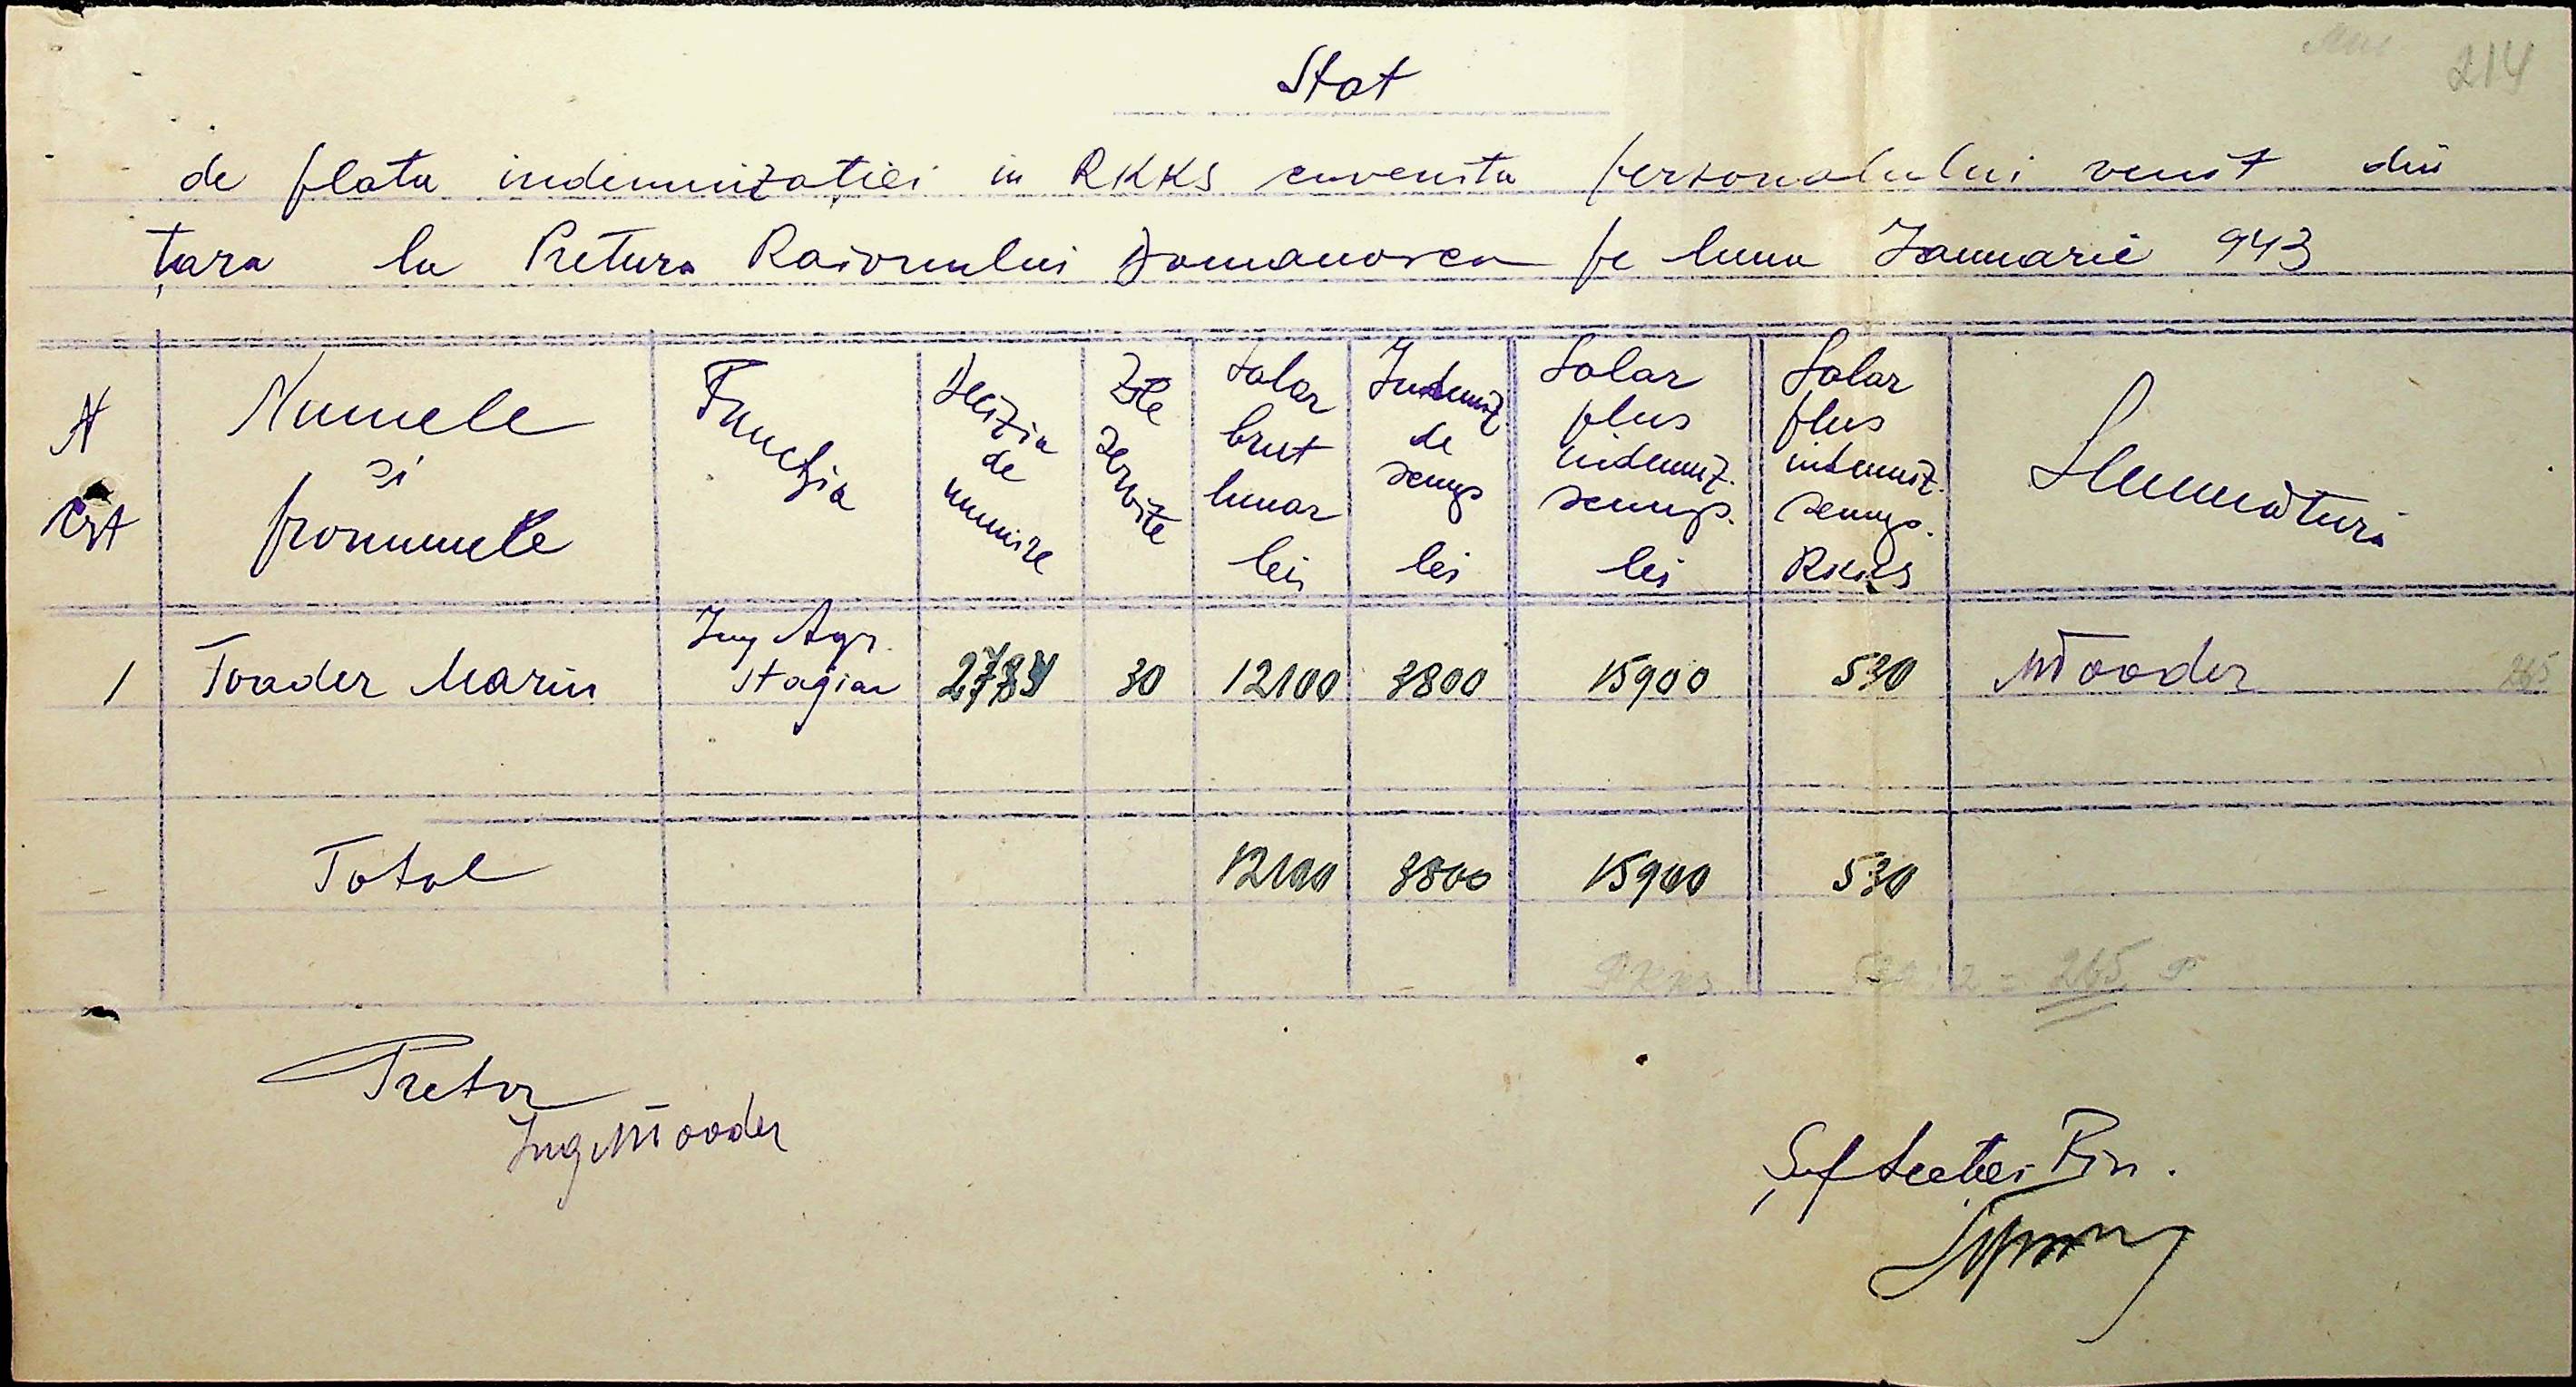 214
Stat
de plata indemnizatiei in RKKS cuvenita personalului venit din
țara la Pretura Raionului Domanovca pe luna Ianuarie 943
N crt
Numele si pronumele
Functia
Decizia de numire
Zile servite
Salar brut lunar lei
Indemniz de scump lei
Salar plus indemniz. scump. lei
Salar plus indemniz. scump. RKKS
Semnătura
1 Toader Marin Ing Agr. Stagiar 2784 30 12100 3800 15900 530 MToader 265
Total 12100 3800 15900 530
RKKS 530:2 = 265
Pretor
Ing MToader
Șef Secției Fin.